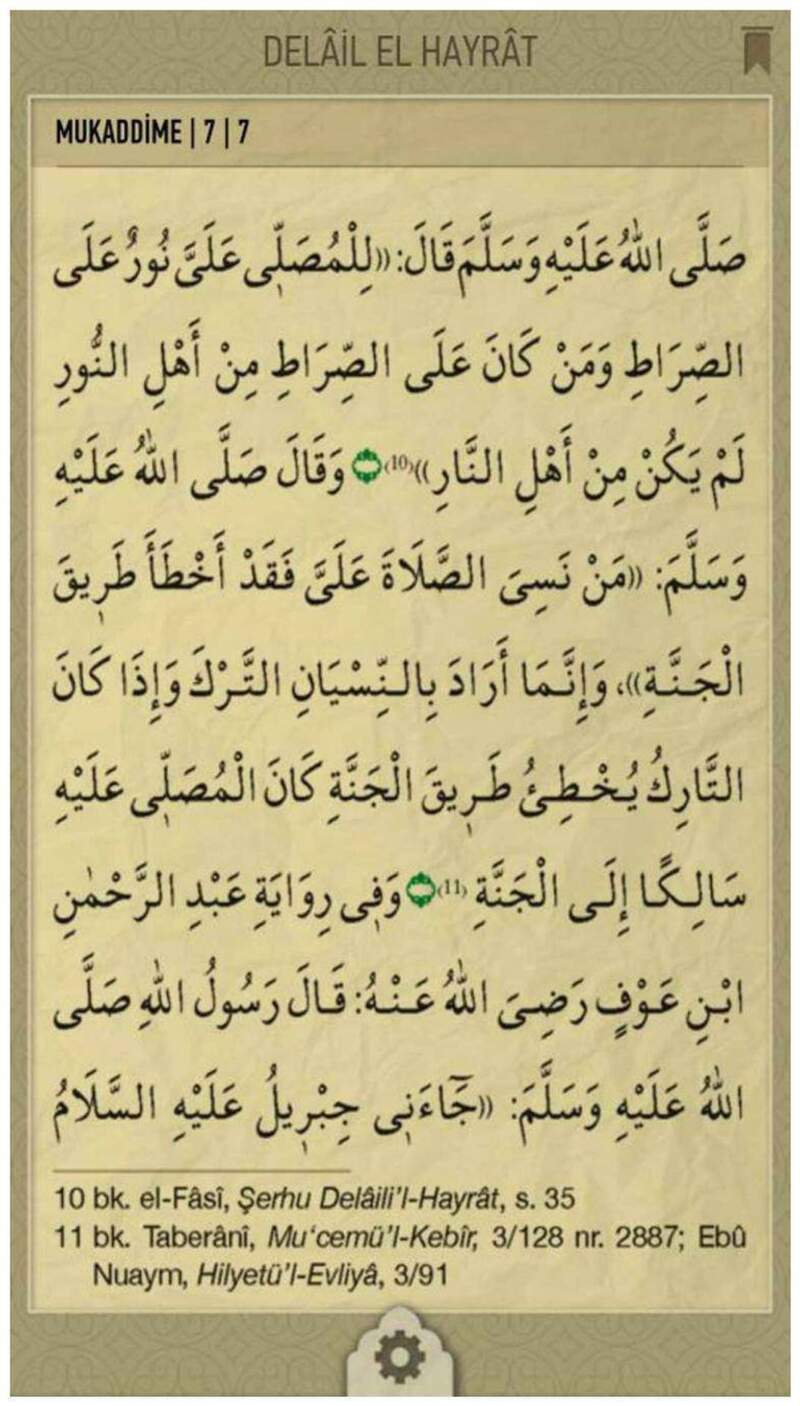 DELÂİL EL HAYRÂT
MUKADDİME | 7 | 7
صَلَّى اللهُ عَلَيْهِ وَسَلَّمَ قَالَ: «لِلْمُصَلِّي عَلَيَّ نُورٌ عَلَى
الصِّرَاطِ وَمَنْ كَانَ عَلَى الصِّرَاطِ مِنْ أَهْلِ النُّورِ
لَمْ يَكُنْ مِنْ أَهْلِ النَّارِ»(10) وَقَالَ صَلَّى اللهُ عَلَيْهِ
وَسَلَّمَ: «مَنْ نَسِيَ الصَّلَاةَ عَلَيَّ فَقَدْ أَخْطَأَ طَرِيقَ
الْجَنَّةِ»، وَإِنَّمَا أَرَادَ بِالنِّسْيَانِ التَّرْكَ وَإِذَا كَانَ
التَّارِكُ يُخْطِئُ طَرِيقَ الْجَنَّةِ كَانَ الْمُصَلِّي عَلَيْهِ
سَالِكًا إِلَى الْجَنَّةِ (11) وَفِي رِوَايَةِ عَبْدِ الرَّحْمٰنِ
ابْنِ عَوْفٍ رَضِيَ اللهُ عَنْهُ: قَالَ رَسُولُ اللهِ صَلَّى
اللهُ عَلَيْهِ وَسَلَّمَ: «جَٓاءَنِي جِبْرِيلُ عَلَيْهِ السَّلَامُ
10 bk. el-Fâsî, Şerhu Delâili’l-Hayrât, s. 35
11 bk. Taberânî, Mu‘cemü’l-Kebîr, 3/128 nr. 2887; Ebû
Nuaym, Hilyetü’l-Evliyâ, 3/91